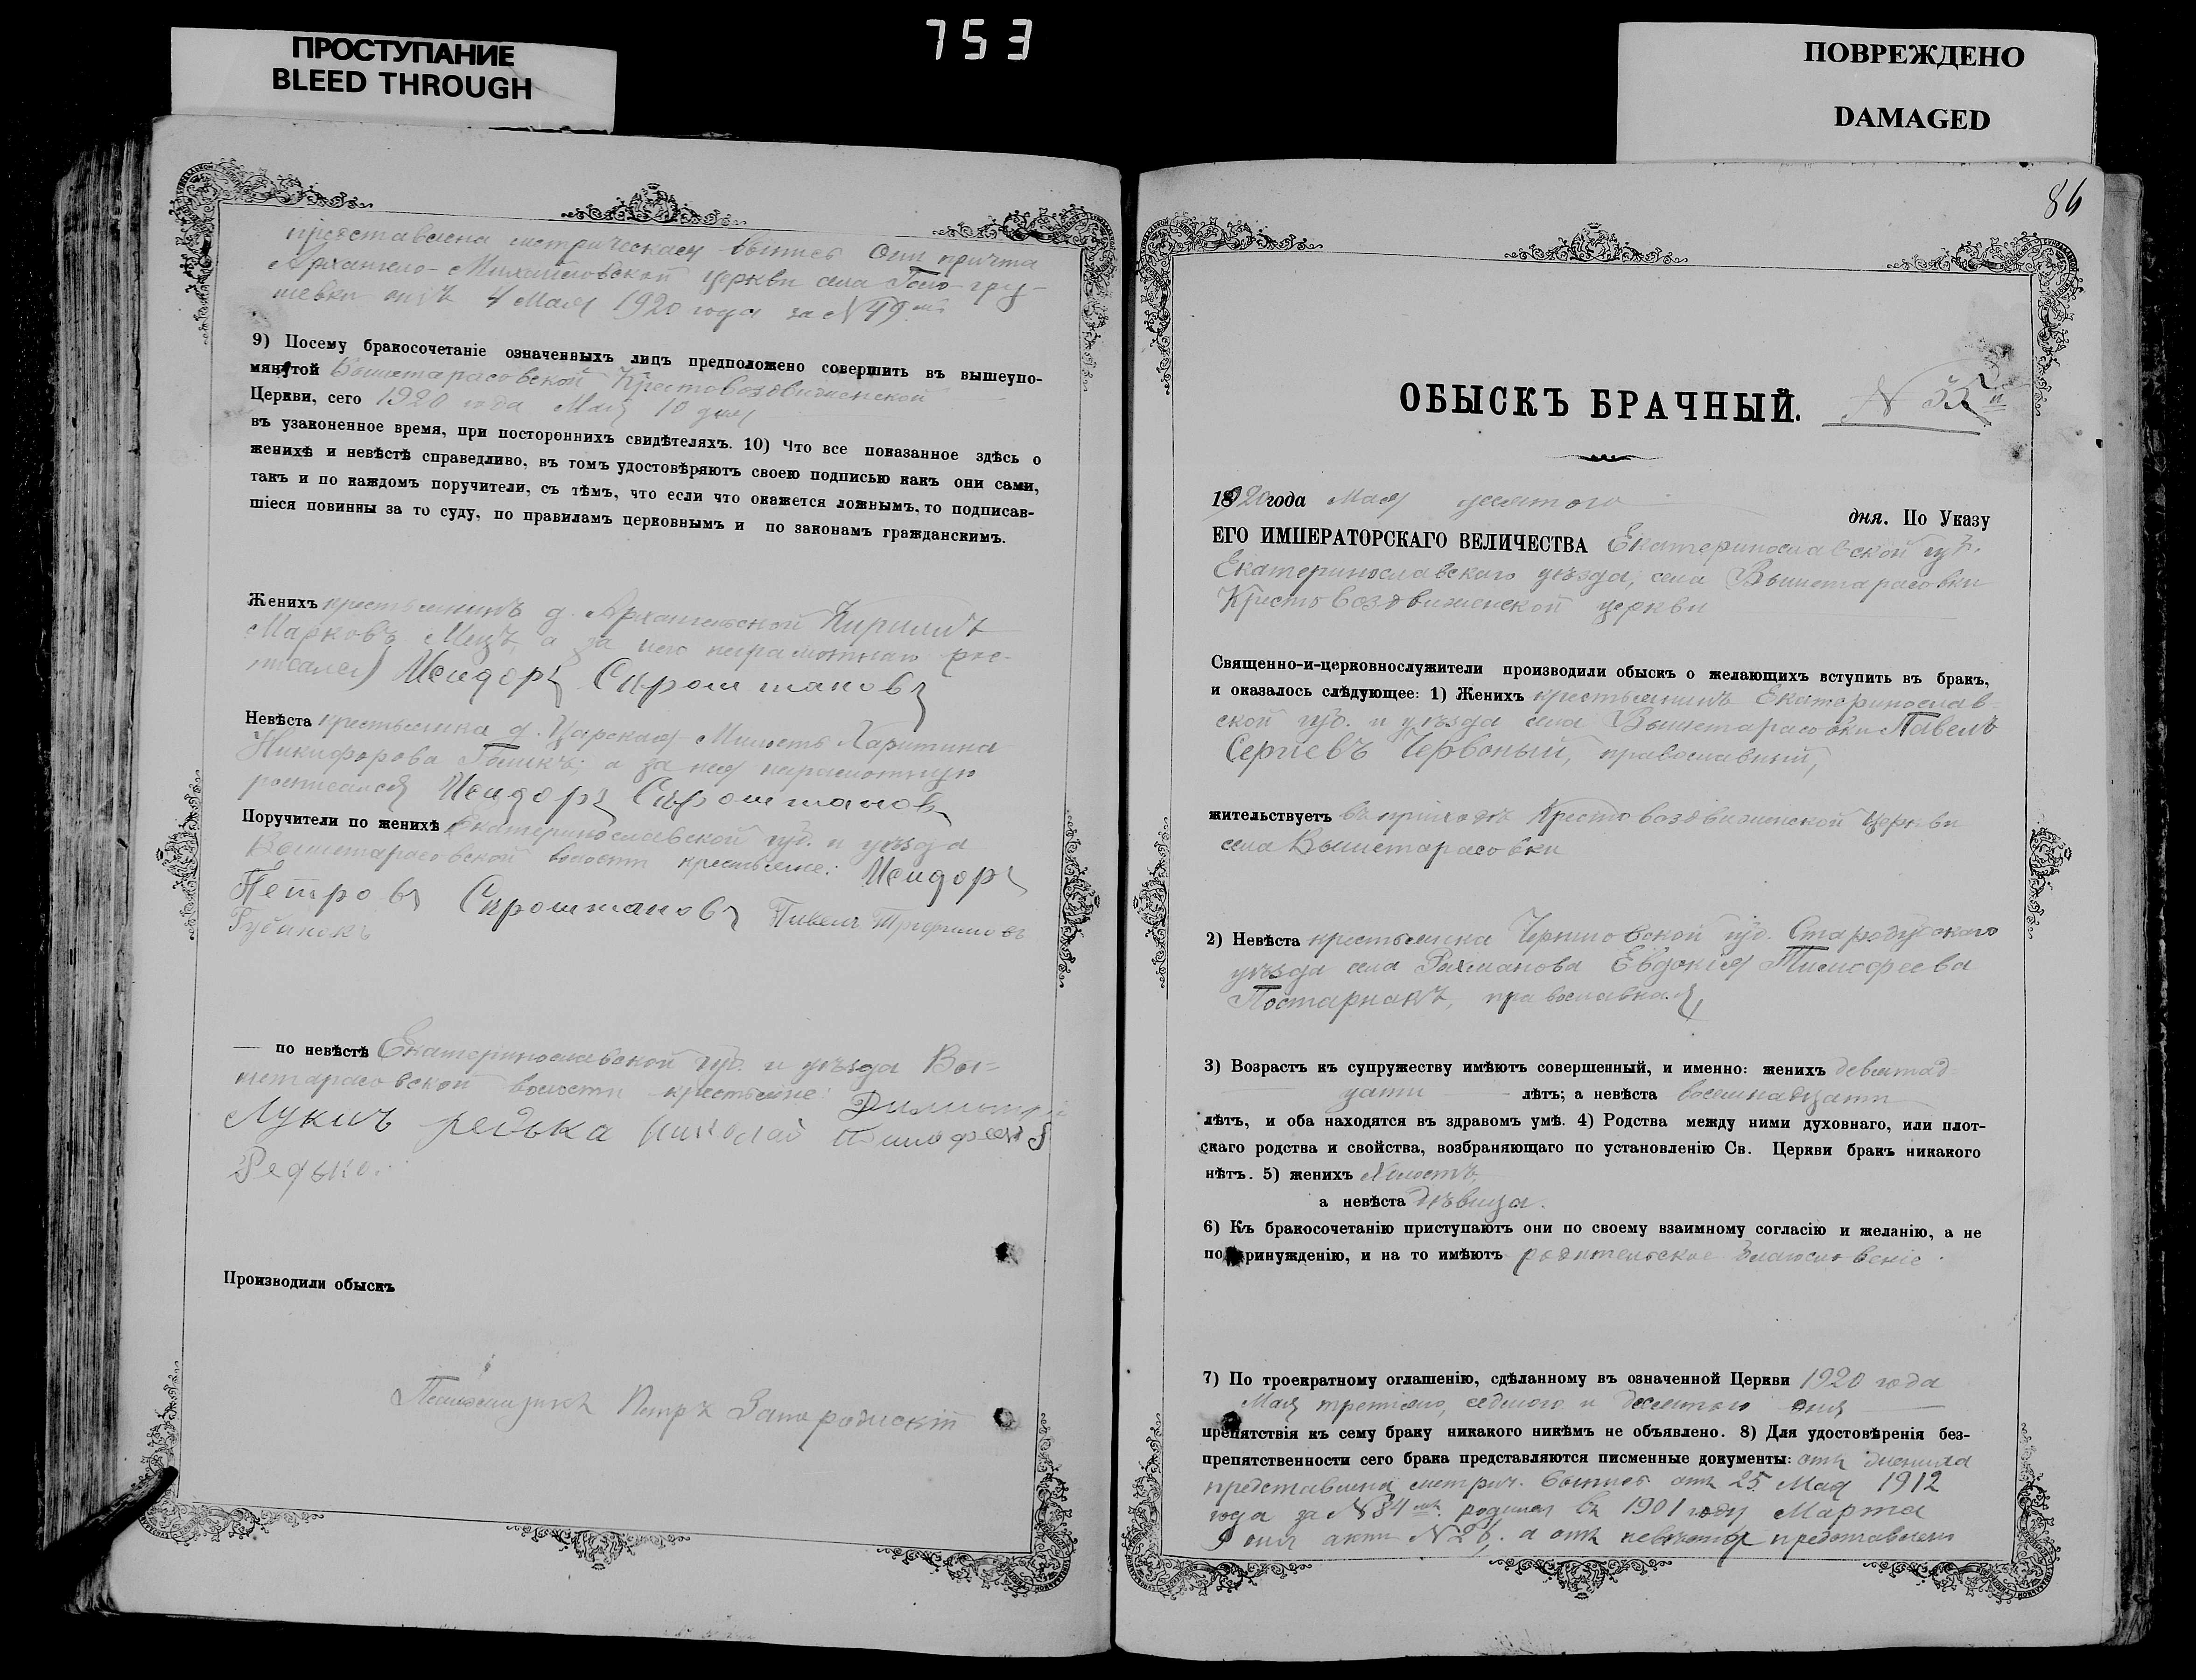 ПРОСТУПАНИЕ
BLEED THROUGH
753
ПОВРЕЖДЕНО
DAMAGED
представлена метрическая выпись отъ причта
Архангело-Михайловской церкви села
отъ 4 Мая 1920 года за №
9) Посему бракосочетаніе означенныхъ лицъ предположено совершить въ вышеупо-
мянутой Вышетарасовской Крестовоздвиженской
Церкви, сего 1920 года Мая 10 дня
въ узаконенное время, при постороннихъ свидѣтеляхъ. 10) Что все показанное здѣсь о
женихѣ и невѣстѣ справедливо, въ томъ удостовѣряютъ своею подписью какъ они сами,
такъ и по каждомъ поручители, съ тѣмъ, что если что окажется ложнымъ, то подписав-
шіеся повинны за то суду, по правиламъ церковнымъ и по законамъ гражданскимъ.
Женихъ крестьянинъ д. Архангельской Кириллъ
Марковъ а за него неграмотнаго рос-
писался Исидоръ Сыроштановъ
Невѣста крестьянка д. Царская Милость Харитина
Никифорова а за нея неграмотную
росписался Исидоръ Сыроштановъ
Поручители по женихѣ Екатеринославской губ. и уѣзда
Вышетарасовской волости крестьяне: Исидоръ
Петровъ Сыроштановъ Павелъ Трифимовъ
— по невѣстѣ Екатеринославской губ. и уѣзда Вы-
шетарасовской волости крестьяне: Димитрій
Лукичъ редька Николай
Редько.
Производили обыскъ
Псаломщикъ Петръ
86
ОБЫСКЪ БРАЧНЫЙ. №
1920 года Мая десятого дня. По Указу
ЕГО ИМПЕРАТОРСКАГО ВЕЛИЧЕСТВА Екатеринославской губ.
Екатеринославскаго уѣзда, села Вышетарасовки
Крестовоздвиженской церкви
Священно-и-церковнослужители производили обыскъ о желающихъ вступить въ бракъ,
и оказалось слѣдующее: 1) Женихъ крестьянинъ Екатеринослав-
ской губ. и уѣзда села Вышетарасовки Павелъ
Сергіевъ Червоный, православный,
жительствуетъ въ приходѣ Крестовоздвиженской церкви
села Вышетарасовки
2) Невѣста крестьянка Черниговской губ. Стародубскаго
уѣзда села Рахманова Евдокія Тимофеева
Постарнакъ, православная,
3) Возрастъ къ супружеству имѣютъ совершенный, и именно: женихъ девятнад-
цати лѣтъ; а невѣста восемнадцати
лѣтъ, и оба находятся въ здравомъ умѣ. 4) Родства между ними духовнаго, или плот-
скаго родства и свойства, возбраняющаго по установленію Св. Церкви бракъ никакого
нѣтъ. 5) женихъ холостъ,
а невѣста дѣвица.
6) Къ бракосочетанію приступаютъ они по своему взаимному согласію и желанію, а не
по принужденію, и на то имѣютъ родительское благословеніе
7) По троекратному оглашенію, сдѣланному въ означенной Церкви 1920 года
Мая третьяго, седьмого и десятаго дня
препятствія къ сему браку никакого никѣмъ не объявлено. 8) Для удостовѣренія без-
препятственности сего брака представляются писменные документы: отъ жениха
представлена метрич. выпись отъ 25 Мая 1912
года за № 84 родился въ 1901 году Марта
9 дня актъ № 26. а отъ невѣсты представлен